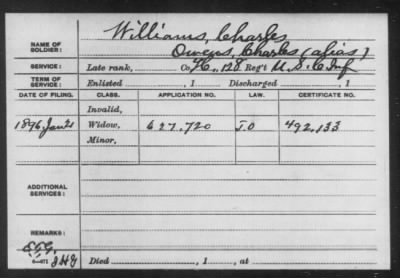 Williams, Charles
NAME OF SOLDIER: Owens, Charles (alias)
SERVICE: Late rank, Co. H., 128 Reg't U.S.C Inf
TERM OF SERVICE: Enlisted , 1 Discharged , 1
DATE OF FILING. CLASS. APPLICATION NO. LAW. CERTIFICATE NO.
Invalid,
1896 Jan 21 Widow, 627.720 J.O 492.133
Minor,
ADDITIONAL SERVICES:
REMARKS:
Died , 1 , at